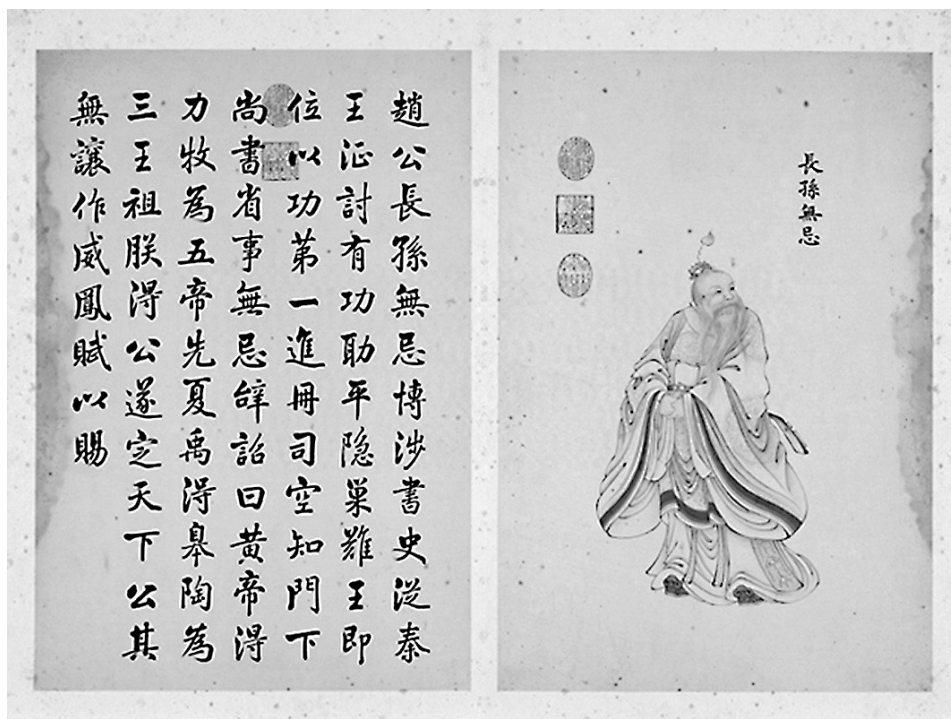 長孫無忌
趙公長孫無忌博涉書史從秦
王征討有功助平隐巢難王即
位以功第一進冊司空知門下
尚書省事無忌辭詔曰黄帝得
力牧為五帝先夏禹得皋陶為
三王祖朕得公遂定天下公其
無讓作威鳳賦以賜